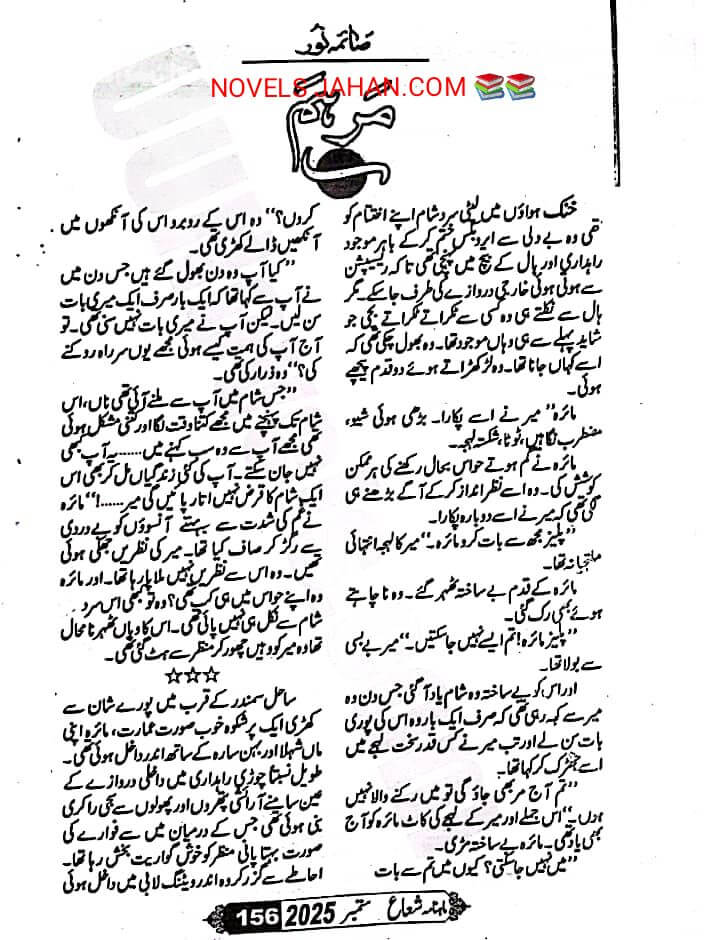 صائمہ نور
NOVELS JAHAN.COM
مرہم
خنک ہواؤں میں لپٹی سرد شام اپنے اختتام کو
تھی وہ بے دلی سے ایروبکس ختم کر کے باہر موجود
راہداری اور ہال کے بیچ میں پہنچی تھی تاکہ ریسیپشن
سے ہوتی ہوئی خارجی دروازے کی طرف جا سکے۔ مگر
ہال سے نکلتے ہی وہ کسی سے ٹکراتے ٹکراتے بچی جو
شاید پہلے سے ہی وہاں موجود تھا۔ وہ بھول چکی تھی کہ
اسے کہاں جانا تھا۔ وہ لڑکھڑاتے ہوئے دو قدم پیچھے
ہوئی۔
مائرہ“ میر نے اسے پکارا۔ بڑھی ہوئی شیو،
مضطرب نگاہیں، ٹوٹا، شکستہ لہجہ۔
مائرہ نے گم ہوتے حواس بحال رکھنے کی ہر ممکن
کوشش کی۔ وہ اسے نظر انداز کر کے آگے بڑھنے ہی
لگی تھی کہ میر نے اسے دوبارہ پکارا۔
”پلیز مجھ سے بات کرو مائرہ۔“ میر کا لہجہ انتہائی
ملتجیانہ تھا۔
مائرہ کے قدم بے ساختہ ٹھہر گئے۔ وہ نا چاہتے
ہوئے بھی رک گئی۔
”پلیز مائرہ! تم ایسے نہیں جا سکتیں۔“ میر بے بسی
سے بولا تھا۔
اور اس کو بے ساختہ وہ شام یاد آ گئی جس دن وہ
میر سے کہہ رہی تھی کہ صرف ایک بار وہ اس کی پوری
بات سن لے اور تب میر نے کس قدر سخت لہجے میں
اسے جھڑک کر کہا تھا۔
”تم آج مر بھی جاؤ گی تو میں رکنے والا نہیں
ہوں۔“ اس جملے اور میر کے لہجے کی کاٹ مائرہ کو آج
بھی یاد تھی۔ مائرہ بے ساختہ مڑی۔
”میں نہیں جا سکتی؟ کیوں میں تم سے بات
کروں؟“ وہ اس کے روبرو اس کی آنکھوں میں
آنکھیں ڈالے کھڑی تھی۔
”کیا آپ وہ دن بھول گئے ہیں جس دن میں
نے آپ سے کہا تھا کہ ایک بار صرف ایک میری بات
سن لیں۔ لیکن آپ نے میری بات نہیں سنی تھی۔ تو
آج آپ کی ہمت کیسے ہوئی مجھے یوں سرراہ روکنے
کی؟“ وہ غرا رہی تھی۔
”جس شام میں آپ سے ملنے آئی تھی ناں، اس
شام تک پہنچنے میں مجھے کتنا وقت لگا اور کتنی مشکل ہوئی
تھی مجھے آپ سے وہ سب کہنے میں...... یہ آپ کبھی
نہیں جان سکتے۔ آپ کی کئی زندگیاں مل کر بھی اس
ایک شام کا قرض نہیں اتار پائیں گی میر......!“ مائرہ
نے غم کی شدت سے بہتے آنسوؤں کو بے دردی
سے رگڑ کر صاف کیا تھا۔ میر کی نظریں جھکی ہوئی
تھیں۔ وہ اس سے نظریں نہیں ملا پا رہا تھا۔ اور مائرہ
وہ اپنے حواس میں ہی کب تھی؟ وہ تو کبھی اس سرد
شام سے نکل ہی نہیں پائی تھی۔ اس کا وہاں ٹھہرنا محال
تھا وہ میر کو وہیں چھوڑ کر منظر سے ہٹ گئی تھی۔
☆☆☆
ساحل سمندر کے قرب میں پورے شان سے
کھڑی ایک پر شکوہ خوب صورت عمارت، مائرہ اپنی
ماں شہلا اور بہن سارہ کے ساتھ اندر داخل ہوئی تھی۔
طویل نسبتاً چوڑی راہداری میں داخلی دروازے کے
عین سامنے آرائشی پتھروں اور پھولوں سے سجی راکری
بنی ہوئی تھی جس کے درمیان میں سے فوارے کی
صورت بہتا پانی منظر کو خوش گواریت بخش رہا تھا۔
احاطے سے گزر کر وہ اندر ویٹنگ لابی میں داخل ہوئی
ماہنامہ شعاع ستمبر 2025 156